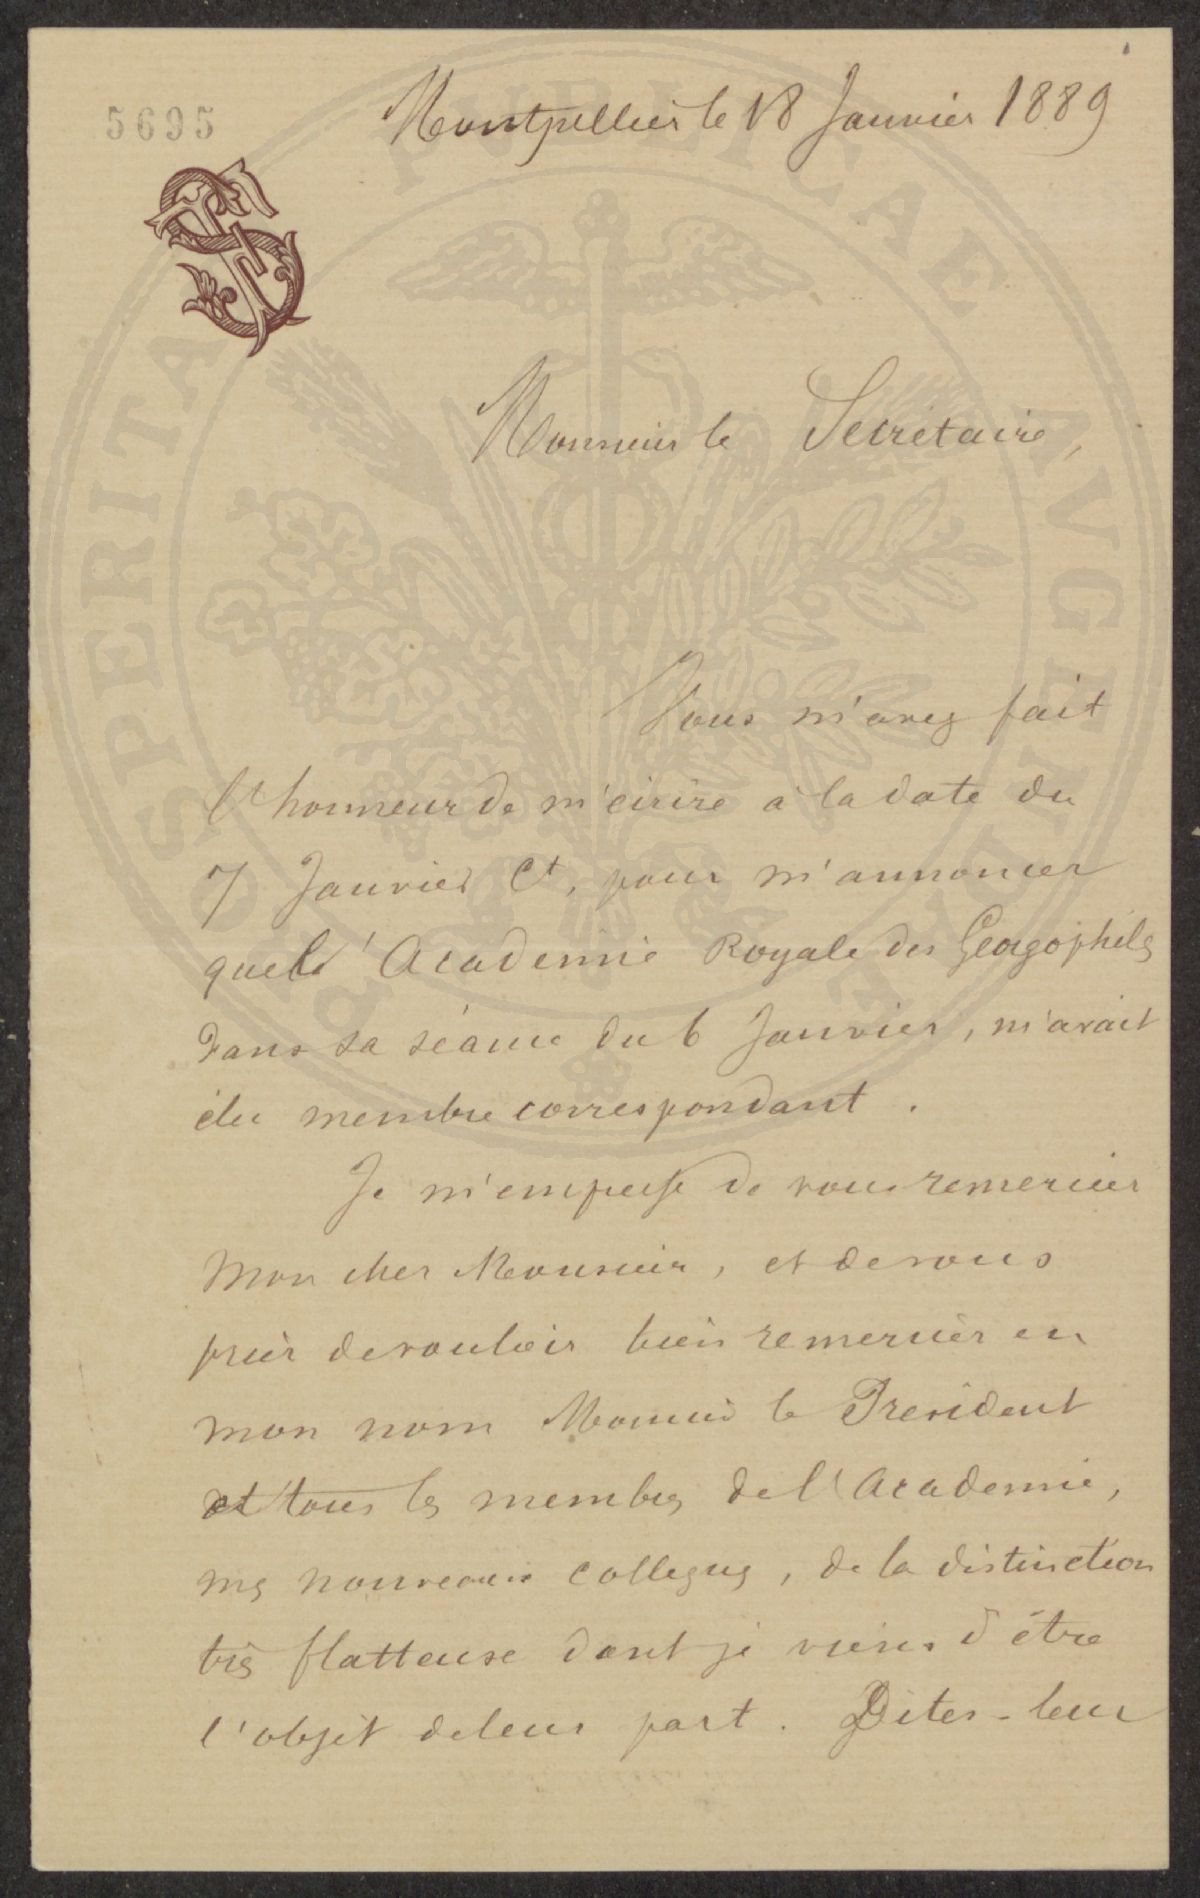 5695
Montpellier le 18 Janvier 1889
Monsieur le Secrétaire,
Vous m'avez fait
l'honneur de m'écrire à la date du
7 Janvier Ct, pour m'annoncer
que l'Academie Royale des Georgophiles
dans sa séance du 6 Janvier, m'avait
élu membre correspondant.
Je m'empresse de vous remercier
mon cher Monsieur, et de vous
prier de vouloir bien remercier en
mon nom Monsieur le President
et tous les membres de l'Academie,
mes nouveaux collegues, de la distinction
très flatteuse dont je viens d'être
l'objet de leur part. Dites-leur
PROSPERITATI PUBLICAE AVGENDAE